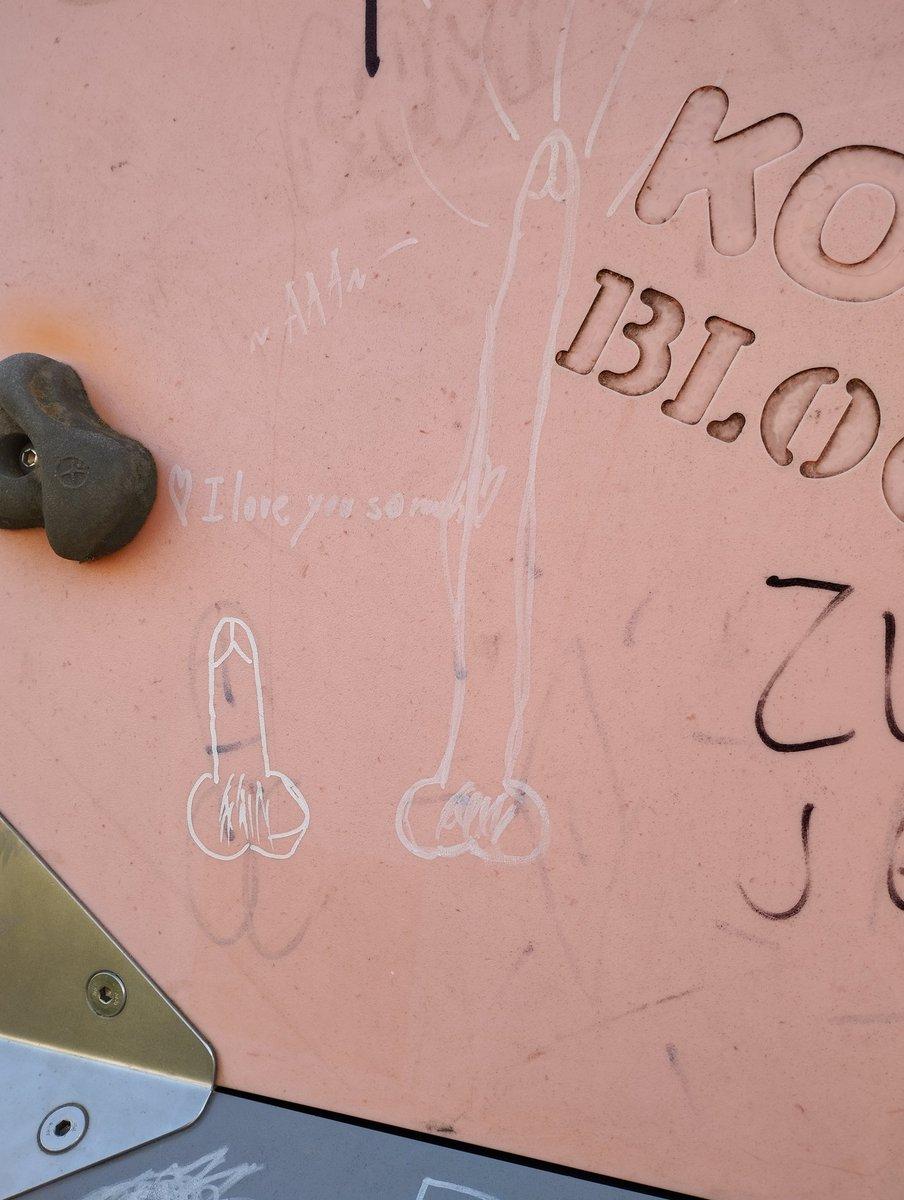 KO
BLOC
~AAA~
I love you so much
ZU
J